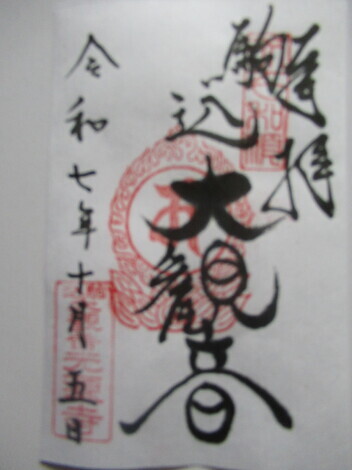 奉拝
駒込
大観音
令和七年十月五日